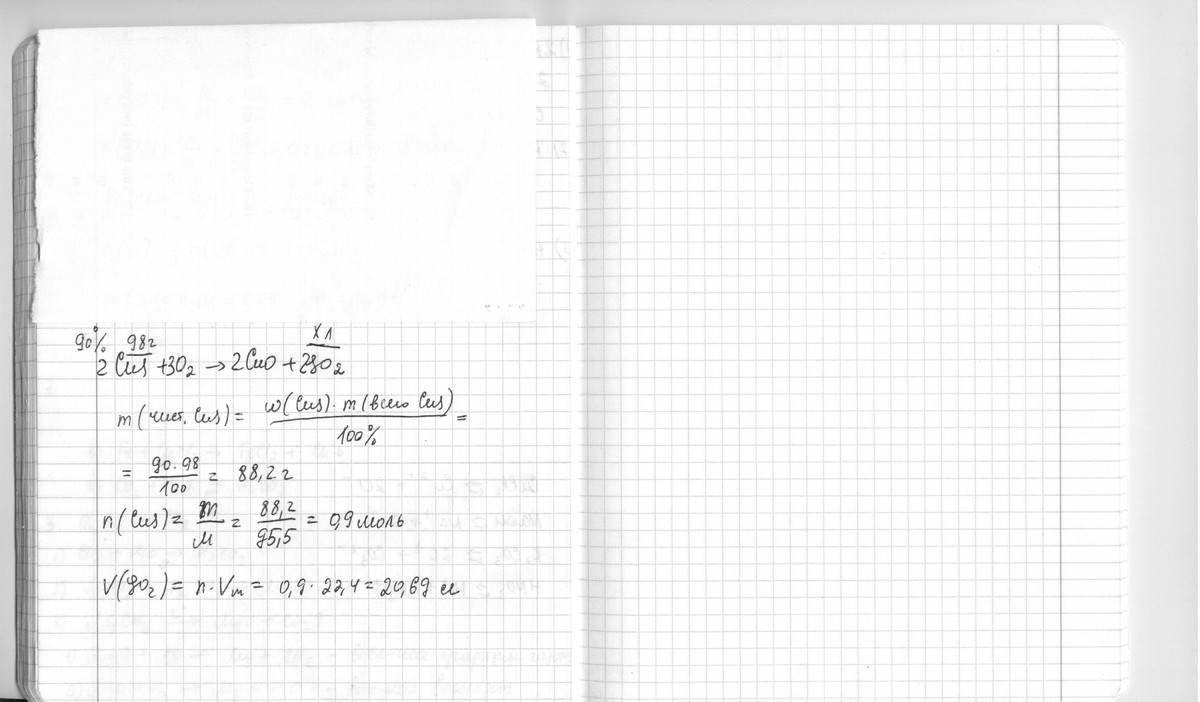 90% 98г Хл
2CuS + 3O₂ → 2CuO + 2SO₂
m(чист. CuS) = ω(CuS) · m(всего CuS) / 100% =
= 90·98 / 100 = 88,2 г
n(CuS) = m / M = 88,2 / 95,5 = 0,9 моль
V(SO₂) = n·Vm = 0,9 · 22,4 = 20,69 л